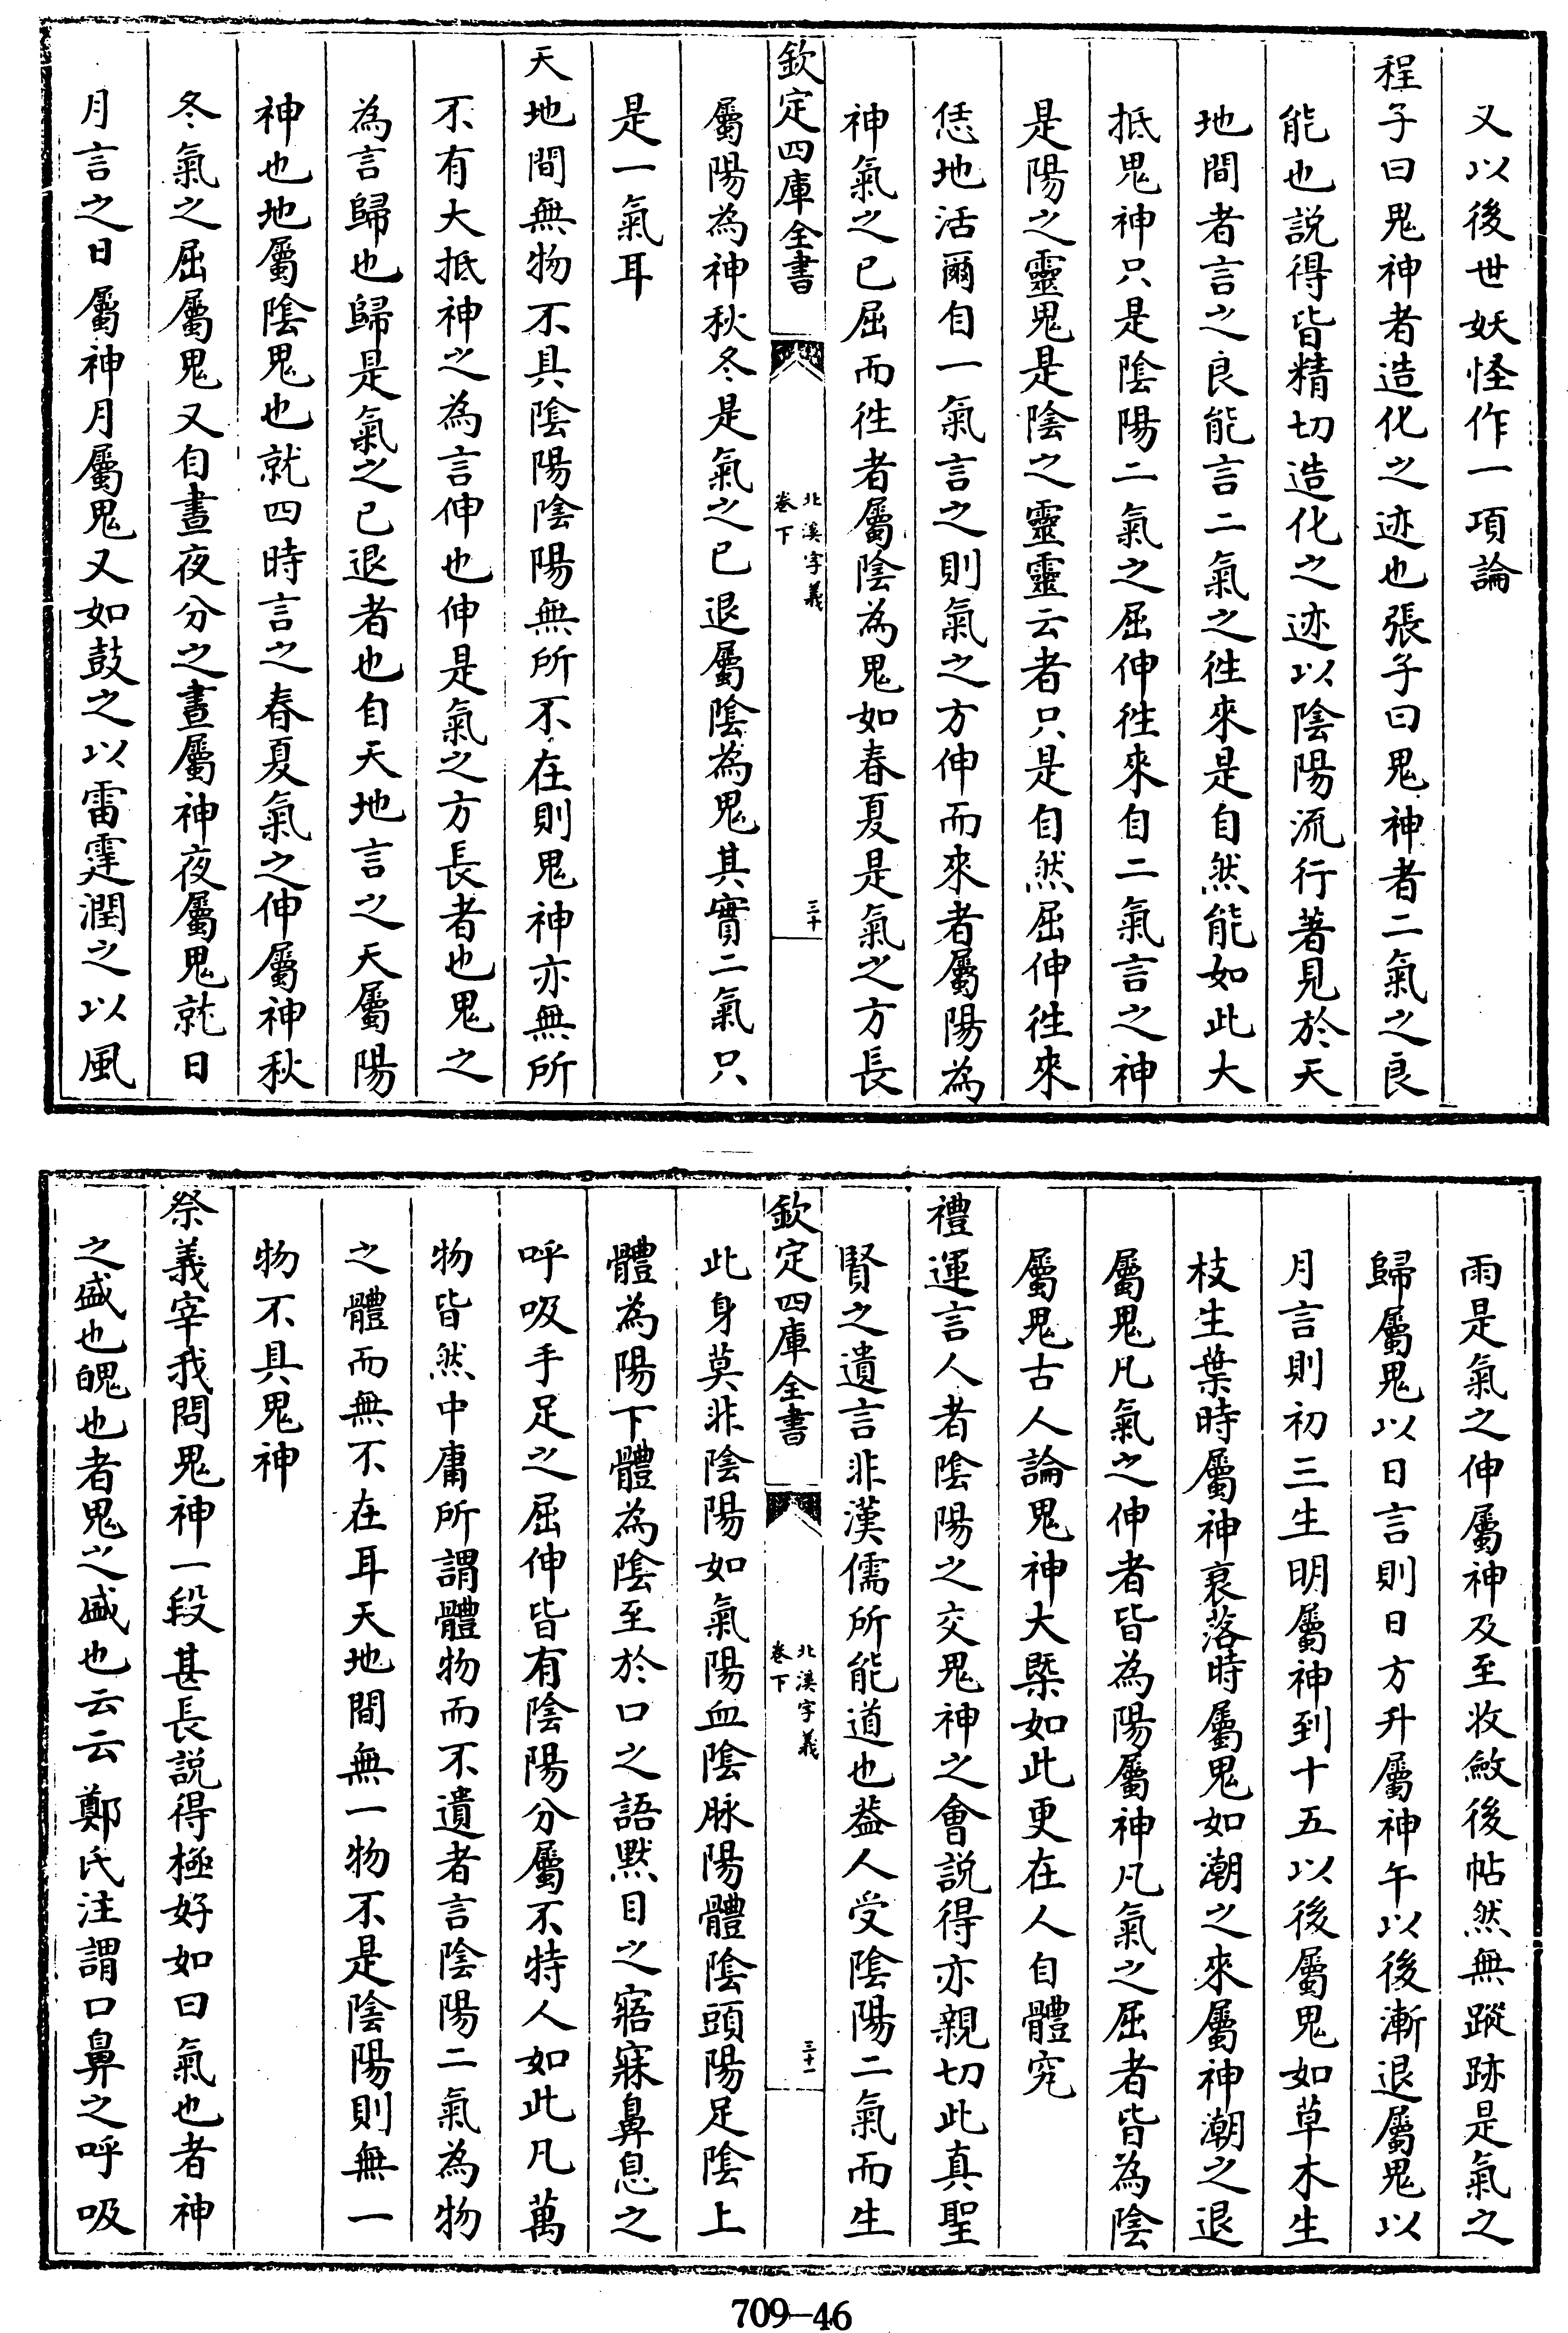 又以後世妖怪作一項論
程子曰鬼神者造化之迹也張子曰鬼神者二氣之良
能也説得皆精切造化之迹以陰陽流行著見於天
地間者言之良能言二氣之徃來是自然能如此大
抵鬼神只是陰陽二氣之屈伸徃來自二氣言之神
是陽之靈鬼是陰之靈靈云者只是自然屈伸徃來
恁地活爾自一氣言之則氣之方伸而來者屬陽為
神氣之已屈而徃者屬陰為鬼如春夏是氣之方長
欽定四庫全書
北溪字義
卷下
三十
屬陽為神秋冬是氣之已退屬陰為鬼其實二氣只
是一氣耳
天地間無物不具陰陽陰陽無所不在則鬼神亦無所
不有大抵神之為言伸也伸是氣之方長者也鬼之
為言歸也歸是氣之已退者也自天地言之天屬陽
神也地屬陰鬼也就四時言之春夏氣之伸屬神秋
冬氣之屈屬鬼又自晝夜分之晝屬神夜屬鬼就日
月言之日屬神月屬鬼又如鼓之以雷霆潤之以風
雨是氣之伸屬神及至收斂後帖然無蹤跡是氣之
歸屬鬼以日言則日方升屬神午以後漸退屬鬼以
月言則初三生明屬神到十五以後屬鬼如草木生
枝生葉時屬神衰落時屬鬼如潮之來屬神潮之退
屬鬼凡氣之伸者皆為陽屬神凡氣之屈者皆為陰
屬鬼古人論鬼神大槩如此更在人自體究
禮運言人者陰陽之交鬼神之會説得亦親切此真聖
賢之遺言非漢儒所能道也葢人受陰陽二氣而生
欽定四庫全書
北溪字義
卷下
三十一
此身莫非陰陽如氣陽血陰脉陽體陰頭陽足陰上
體為陽下體為陰至於口之語默目之寤寐鼻息之
呼吸手足之屈伸皆有陰陽分屬不特人如此凡萬
物皆然中庸所謂體物而不遺者言陰陽二氣為物
之體而無不在耳天地間無一物不是陰陽則無一
物不具鬼神
祭義宰我問鬼神一段甚長説得極好如曰氣也者神
之盛也魄也者鬼之盛也云云鄭氏注謂口鼻之呼吸
709-46